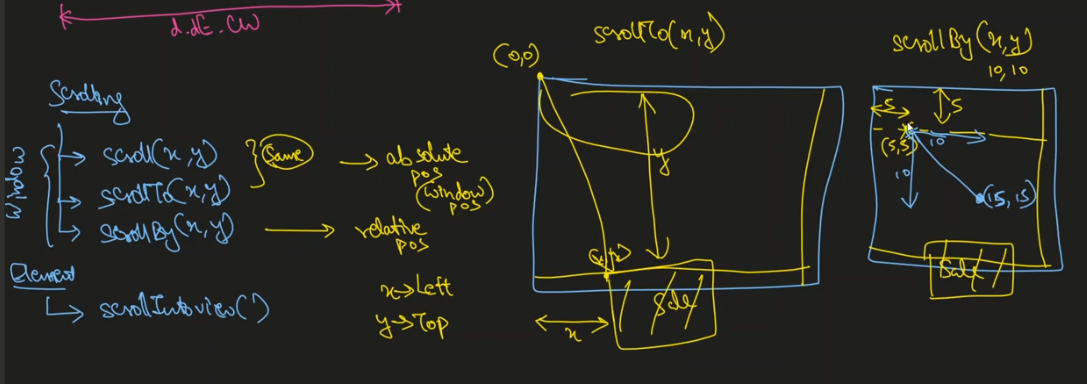 d.dE.CW
Scrolling
Window
scroll(x,y)
scrollTo(x,y)
scrollBy(x,y)
Same
absolute
pos
(window)
pos
relative
pos
Element
scrollIntoview()
x→Left
y→Top
scrollTo(x,y)
(0,0)
y
(x,y)
x
Sale
scrollBy(x,y)
10,10
5
5
(5,5)
10
10
(15,15)
Sale